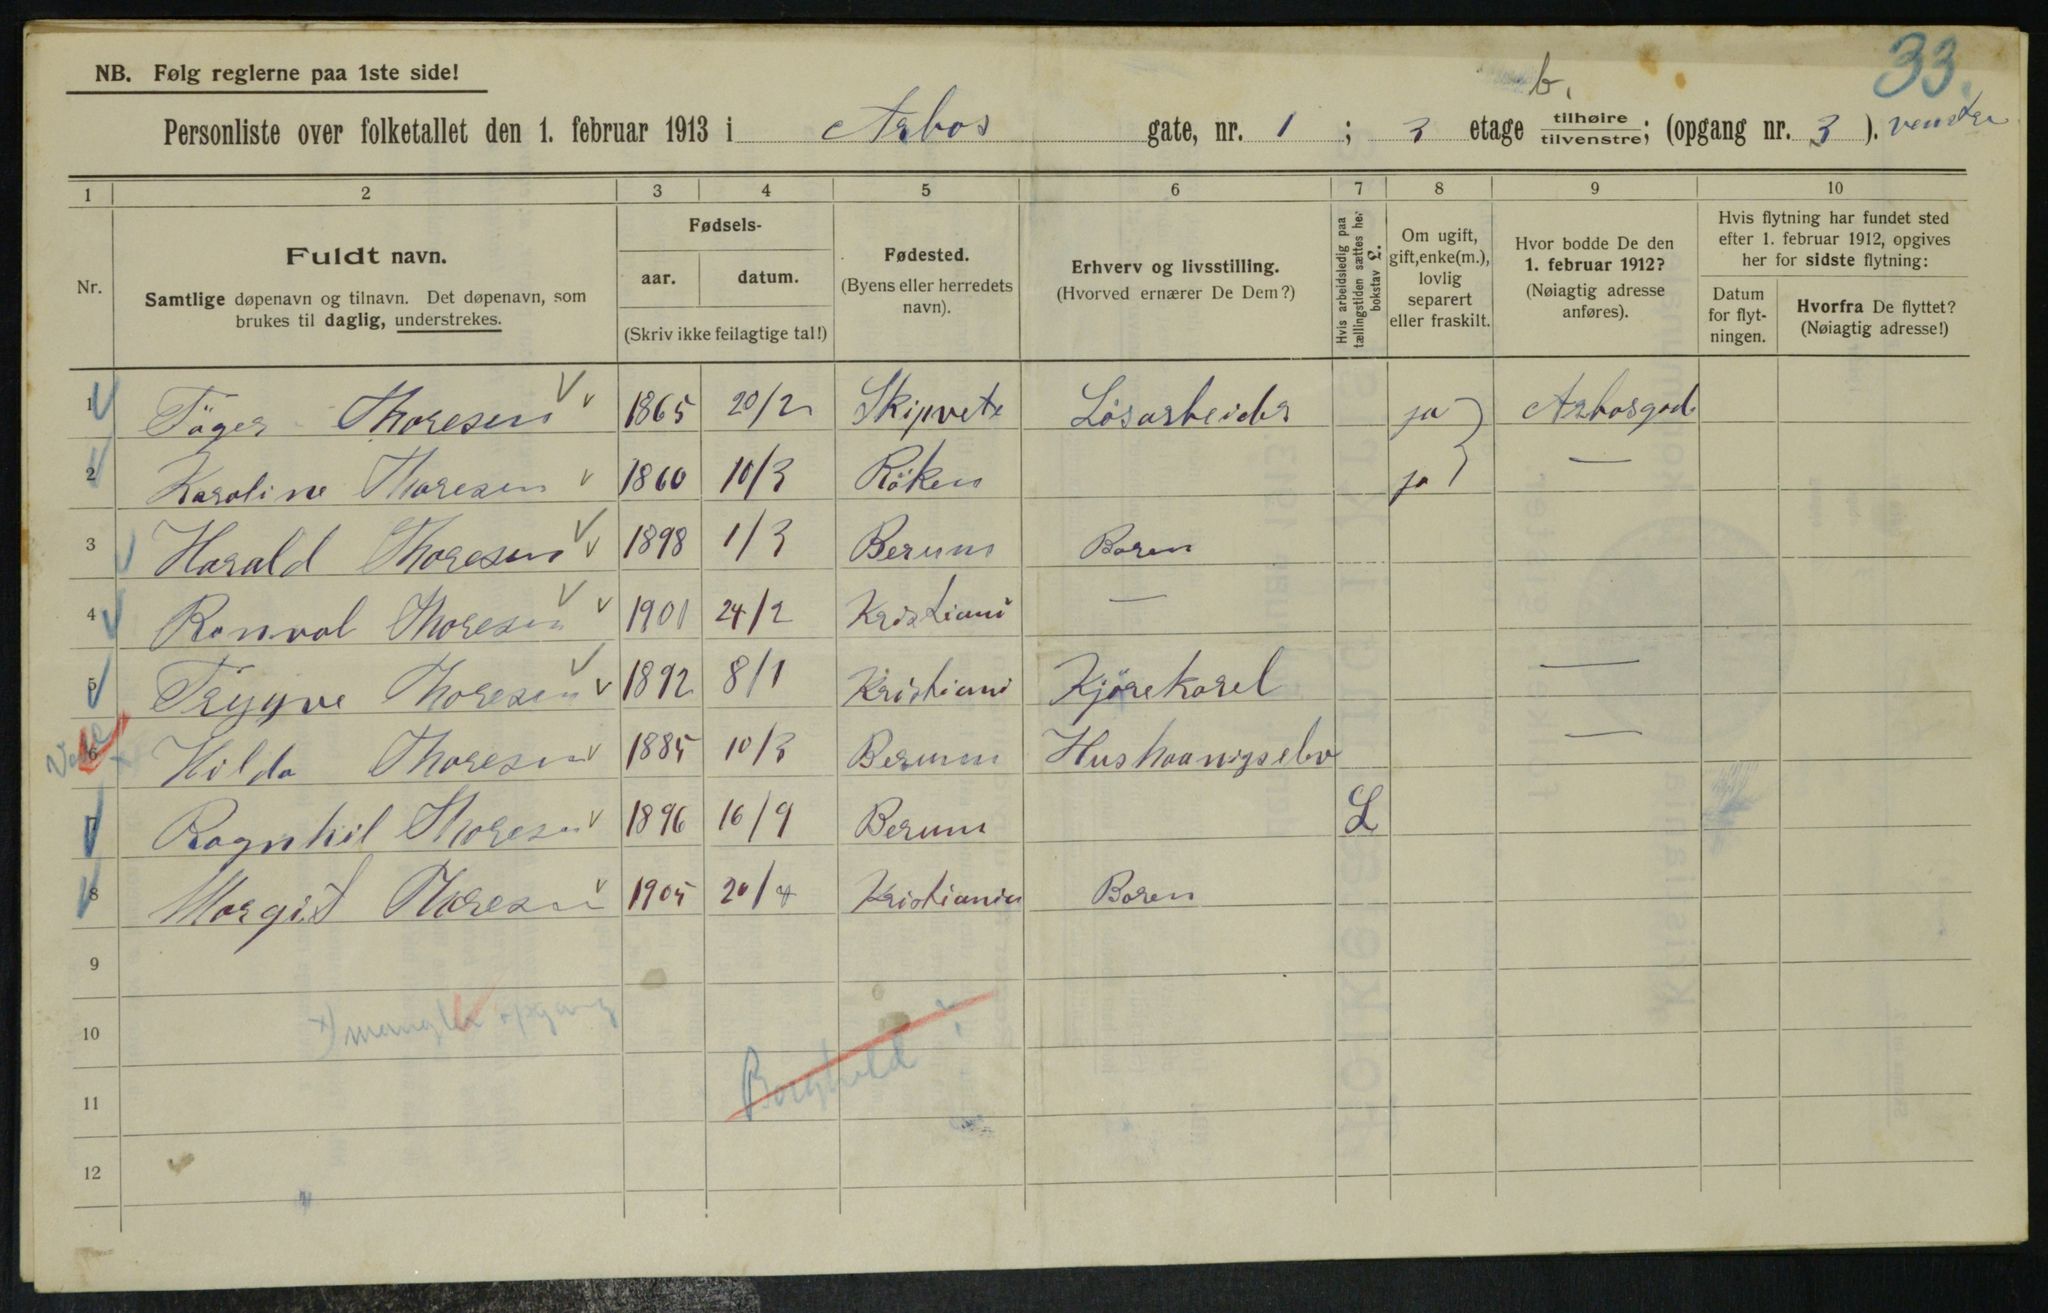 33.
NB. Følg reglerne paa 1ste side!
b.
Personliste over folketallet den 1. februar 1913 i Arbos gate, nr. 1 ; 3 etage tilhøire / tilvenstre; (opgang nr. 3 ). venster
1 2 3 4 5 6 7 8 9 10
Nr.
Fuldt navn.
Samtlige døpenavn og tilnavn. Det døpenavn, som
brukes til daglig, understrekes.
Fødsels-
aar. datum.
(Skriv ikke feilagtige tal!)
Fødested.
(Byens eller herredets
navn).
Erhverv og livsstilling.
(Hvorved ernærer De Dem?)
Hvis arbeidsledig paa
tællingstiden sættes her
bokstav L.
Om ugift,
gift, enke(m.),
lovlig
separert
eller fraskilt.
Hvor bodde De den
1. februar 1912?
(Nøiagtig adresse
anføres).
Hvis flytning har fundet sted
efter 1. februar 1912, opgives
her for sidste flytning:
Datum
for flyt-
ningen.
Hvorfra De flyttet?
(Nøiagtig adresse!)
1 Töger Thoresen 1865 20/2 Skipvete Lösarbeider ja Arbosgad.
2 Karoline Thoresen 1860 10/3 Röken ja —
3 Harald Thoresen 1898 1/3 Berum Baren
4 Ranval Thoresen 1901 24/2 Kristiani —
5 Trygve Thoresen 1892 8/1 Kristiani Kjörekarel —
6 Hilda Thoresen 1885 10/3 Berum —
7 Ragnhil Thoresen 1896 16/9 Berum L
8 Margit Thoresen 1905 20/4 Kristiania Baren
9
10
x) mangler opgang
Borghild
11
12